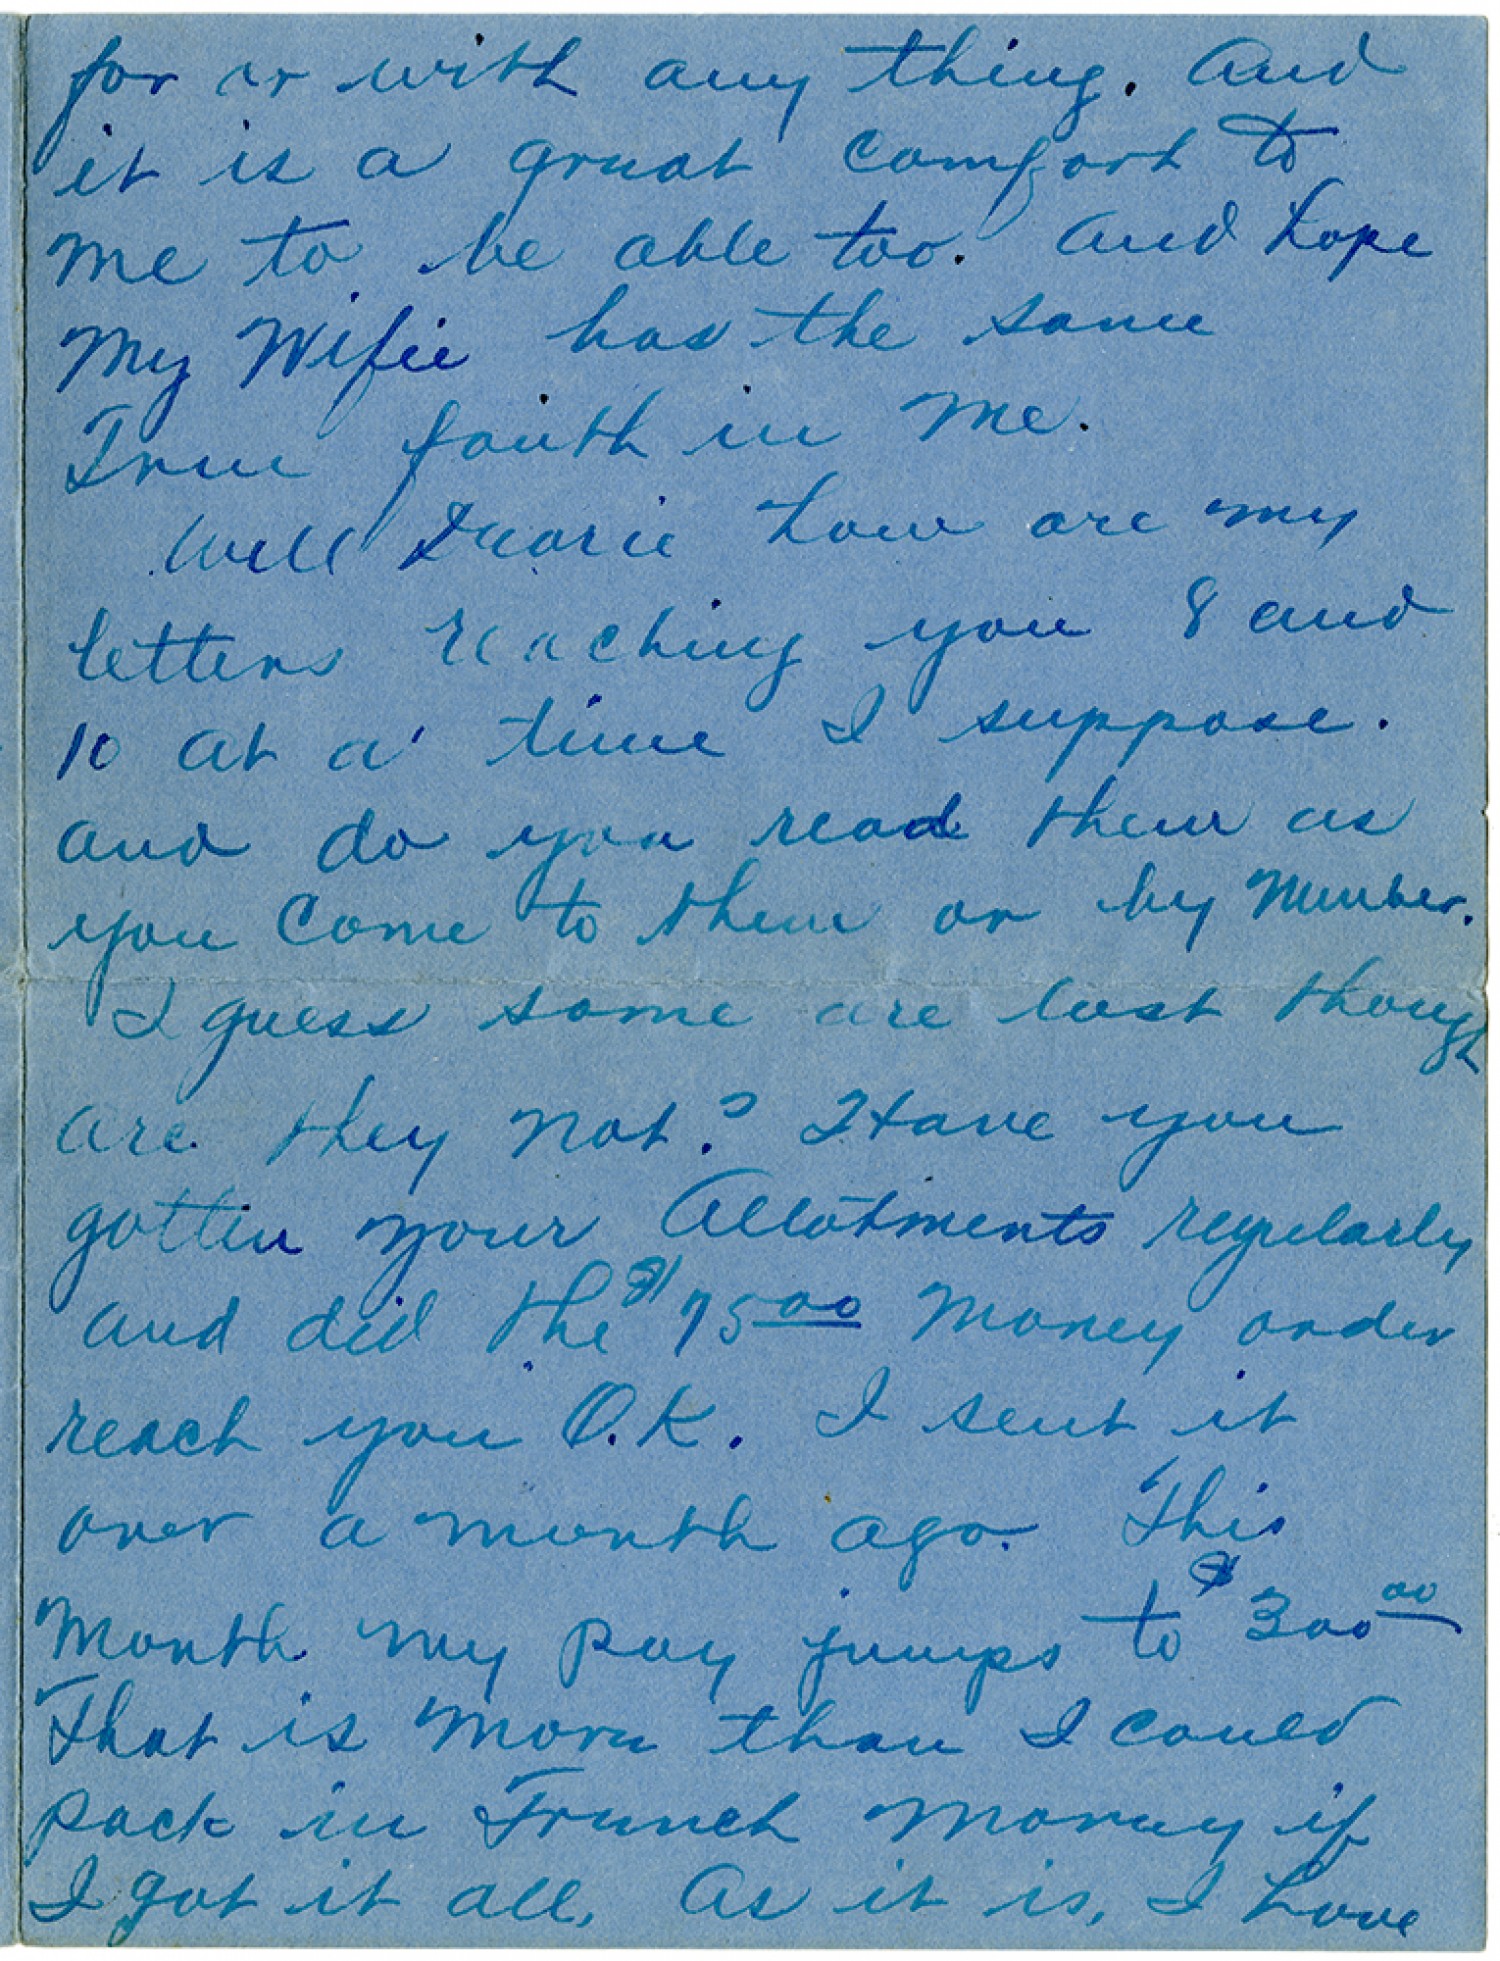 for or with any thing. And
it is a great comfort to
me to be able too. And hope
My Wifie has the same
True faith in Me.
Well Dearie how are my
letters reaching you 8 and
10 at a time I suppose.
and do you read them as
you come to them or by Number.
I guess some are lost though
are they not? Have you
gotten your Allotments regularly
and did the $75.00 Money order
reach you O.K. I sent it
over a month ago. This
Month my pay jumps to $300.00
That is More than I could
pack in French Money if
I got it all. As it is, I have